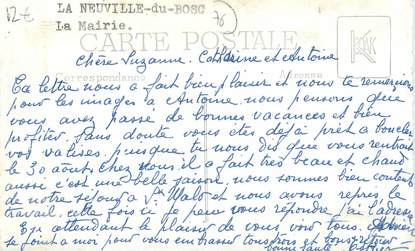 12€
LA NEUVILLE-du-BOSC
La Mairie.
76
CARTE POSTALE
Chère Suzanne. Catherine et Antoine
Correspondance Adresse
Ta lettre nous a fait bien plaisir et nous te remercions
pour les images à Antoine. nous pensons que
vous avez passé de bonnes vacances et bien
profiter. Sans doute vous êtes déjà prêt a boucler
vos valises, puisque tu nous dis que vous rentrait
le 30 août. Chez nous il a fait très beau et chaud
aussi c'est une belle saison, nous sommes bien content
de notre séjour a St Malo et nous avons repris le
travail, cette fois ci je peux vous répondre j'ai l'adresse
En attendant le plaisir de vous voir tous.
se joint a moi pour vous embrasser tous trois